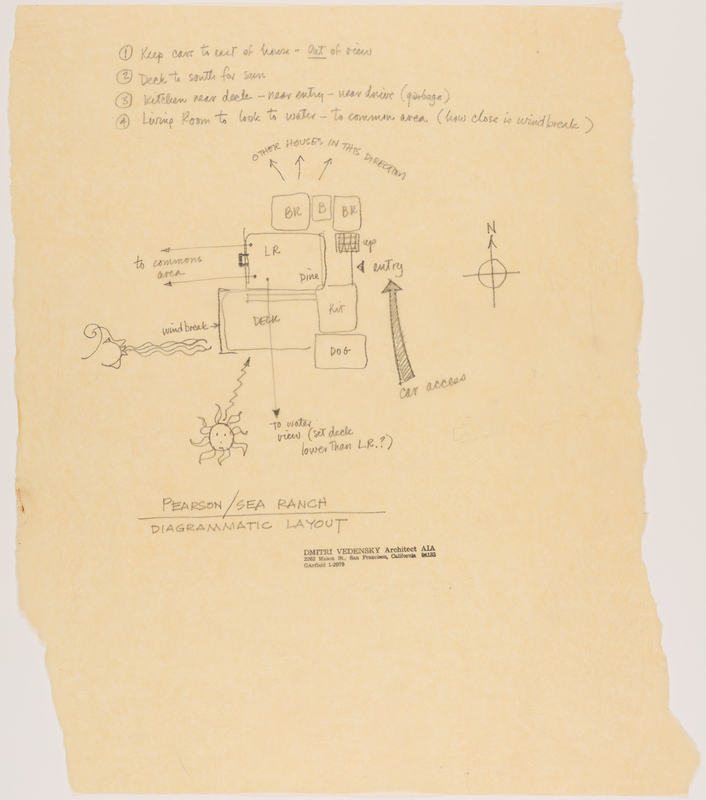 ① Keep cars to east of house – Out of view
② Deck to south for sun
③ Kitchen near deck – near entry – near drive (garbage)
④ Living Room to look to water – to common area (how close is windbreak)
OTHER HOUSES IN THIS DIRECTION
BR B BR
N
up
LR
to commons
area
entry
Dine
Kit
DECK
windbreak
DOG
car access
to water
view (set deck
lower than L.R.?)
PEARSON/SEA RANCH
DIAGRAMMATIC LAYOUT
DMITRI VEDENSKY Architect AIA
2262 Mason St., San Francisco, California 94133
GArfield 1-2079